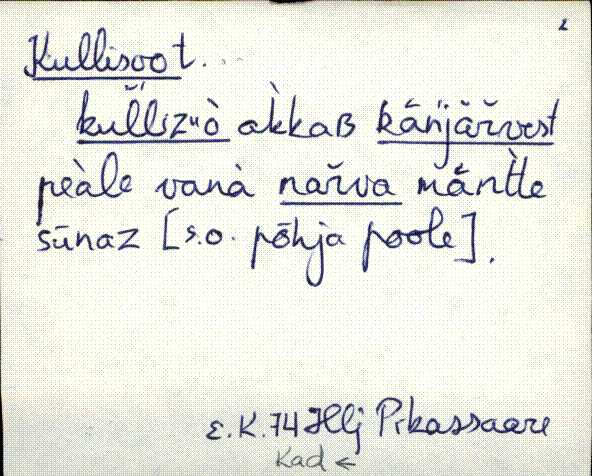 2
Kullisoot.
kullizuò àkkaB kāńjäŕvest
peàle vanà naŕva māǹtte
sūnaz [s.o. põhja poole].
E.K. 74 Hlj Pikassaare
Kad ←